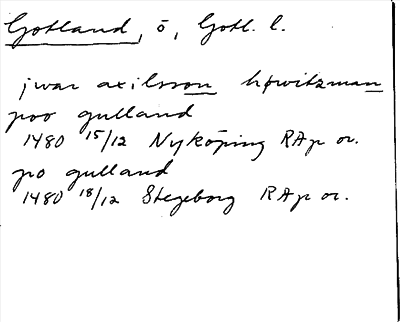 Gotland, ö, Gotl. l.
jwar axilsson höwitzman
poo gulland
1480 15/12 Nyköping RAp or.
po gulland
1480 18/12 Stegeborg RAp or.